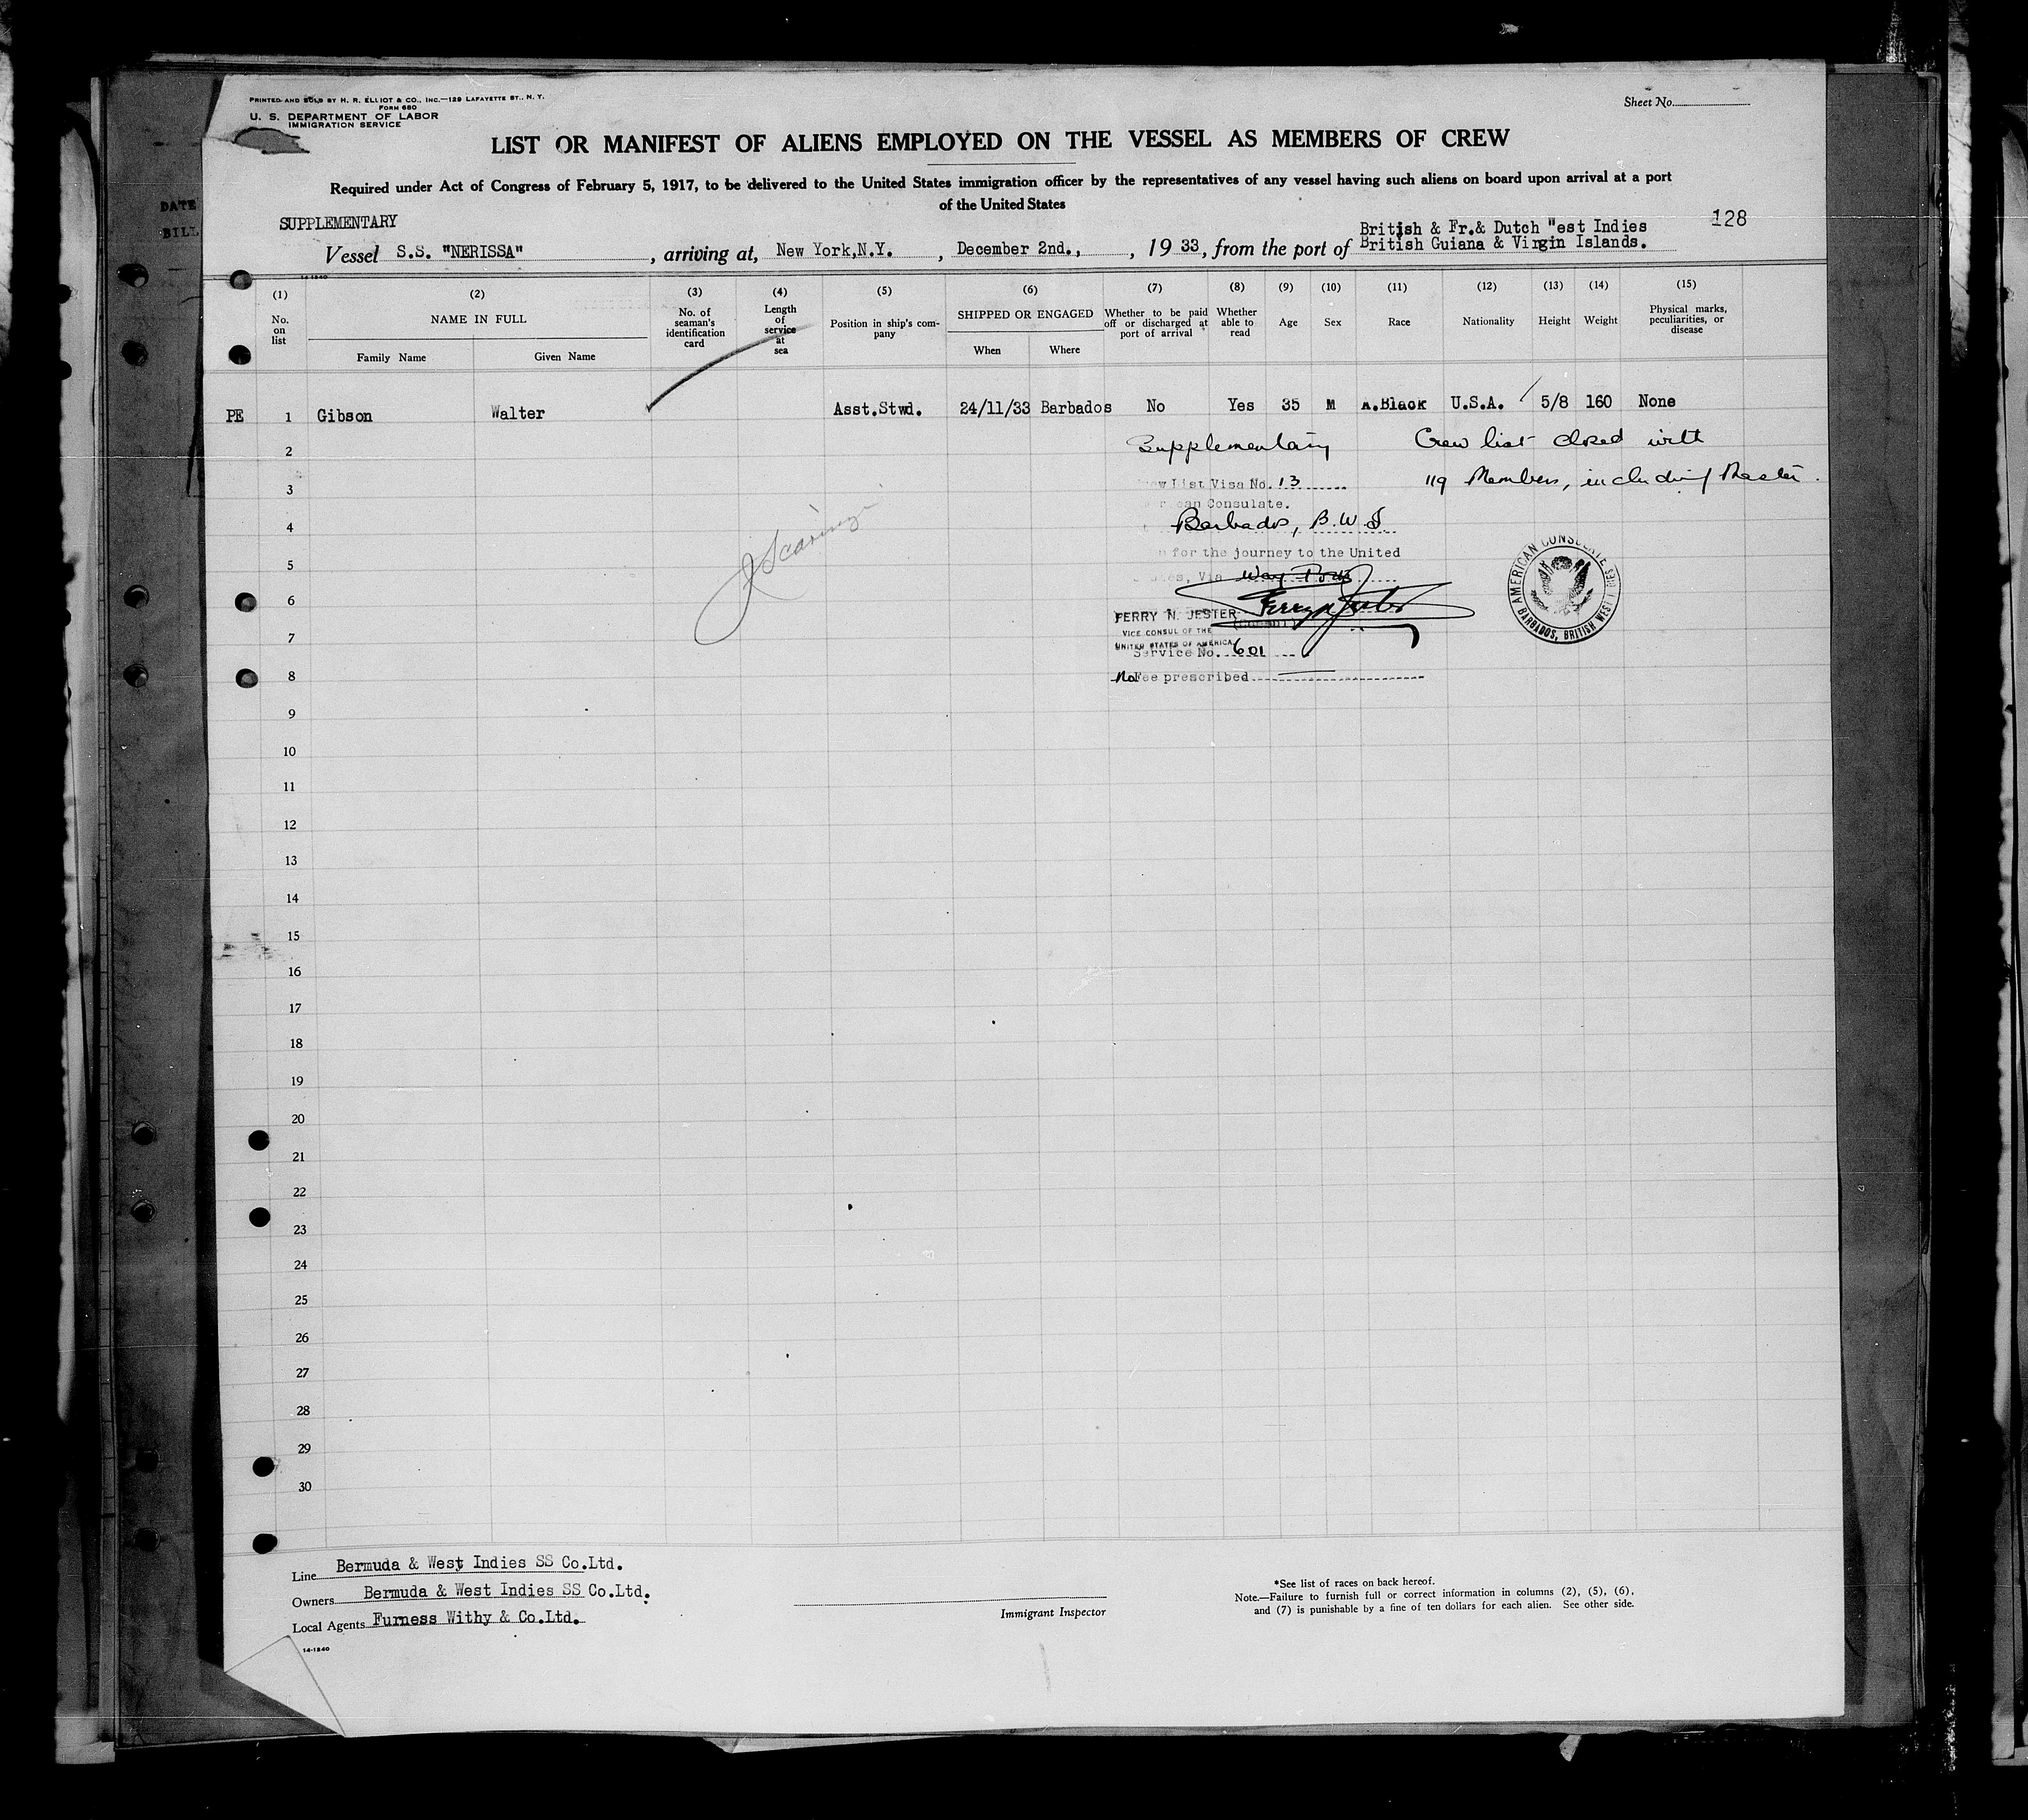 PRINTED AND SOLD BY H. R. ELLIOT & CO., INC.—129 LAFAYETTE ST., N. Y.
FORM 680
U. S. DEPARTMENT OF LABOR
IMMIGRATION SERVICE
Sheet No.
LIST OR MANIFEST OF ALIENS EMPLOYED ON THE VESSEL AS MEMBERS OF CREW
Required under Act of Congress of February 5, 1917, to be delivered to the United States immigration officer by the representatives of any vessel having such aliens on board upon arrival at a port
of the United States
DATE
BILL
SUPPLEMENTARY
British & Fr.& Dutch "est Indies 128
Vessel S.S. "NERISSA", arriving at, New York,N.Y., December 2nd., , 19 33, from the port of British Guiana & Virgin Islands.
14-1240
(1) (2) (3) (4) (5) (6) (7) (8) (9) (10) (11) (12) (13) (14) (15)
No. on list
NAME IN FULL
Family Name
Given Name
No. of seaman's identification card
Length of service at sea
Position in ship's company
SHIPPED OR ENGAGED
When
Where
Whether to be paid off or discharged at port of arrival
Whether able to read
Age
Sex
Race
Nationality
Height
Weight
Physical marks, peculiarities, or disease
PE 1 Gibson Walter Asst.Stwd. 24/11/33 Barbados No Yes 35 M A.Black U.S.A. 5/8 160 None
2 Supplementary Crew list closed with
3 List Visa No. 13 119 Members, including Master.
Consulate.
4 Barbados, B.W.I.
for the journey to the United
5
Via Way Ports
6
PERRY N. JESTER
7
VICE CONSUL OF THE
UNITED STATES OF AMERICA
Service No. 601
8 No Fee prescribed
AMERICAN CONSULATE
BARBADOS, BRITISH WEST INDIES
9
10
11
12
13
14
15
16
17
18
19
20
21
22
23
24
25
26
27
28
29
30
Line Bermuda & West Indies SS Co.Ltd.
Owners Bermuda & West Indies SS Co.Ltd.
Local Agents Furness Withy & Co.Ltd.
14-1240
Immigrant Inspector
*See list of races on back hereof.
Note.—Failure to furnish full or correct information in columns (2), (5), (6),
and (7) is punishable by a fine of ten dollars for each alien. See other side.